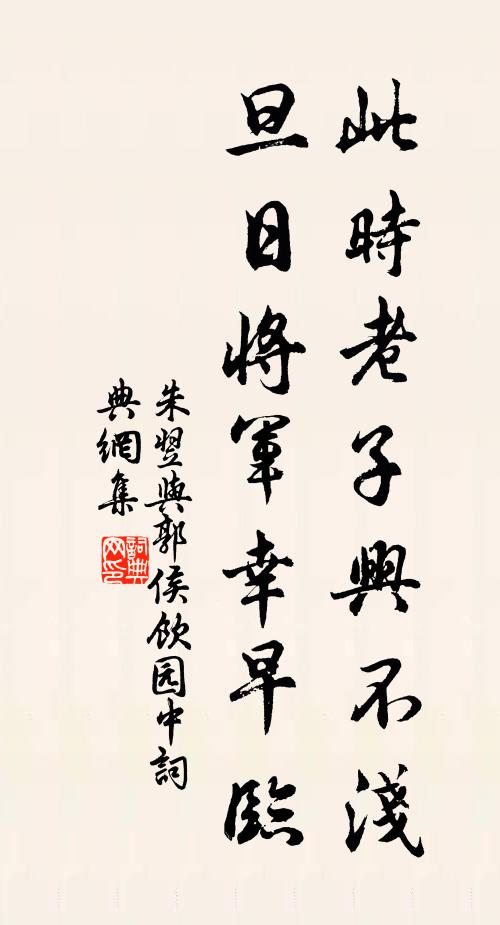 此時老子興不淺
旦日將軍幸早臨
朱翌與郭侯飲园中詞
典網集
詞典
网印